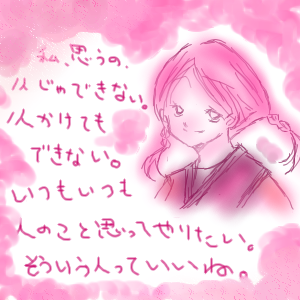 私、思うの、
1人じゃできない。
1人かけても
できない。
いつもいつも
人のこと思ってやりたい。
そういう人っていいね。